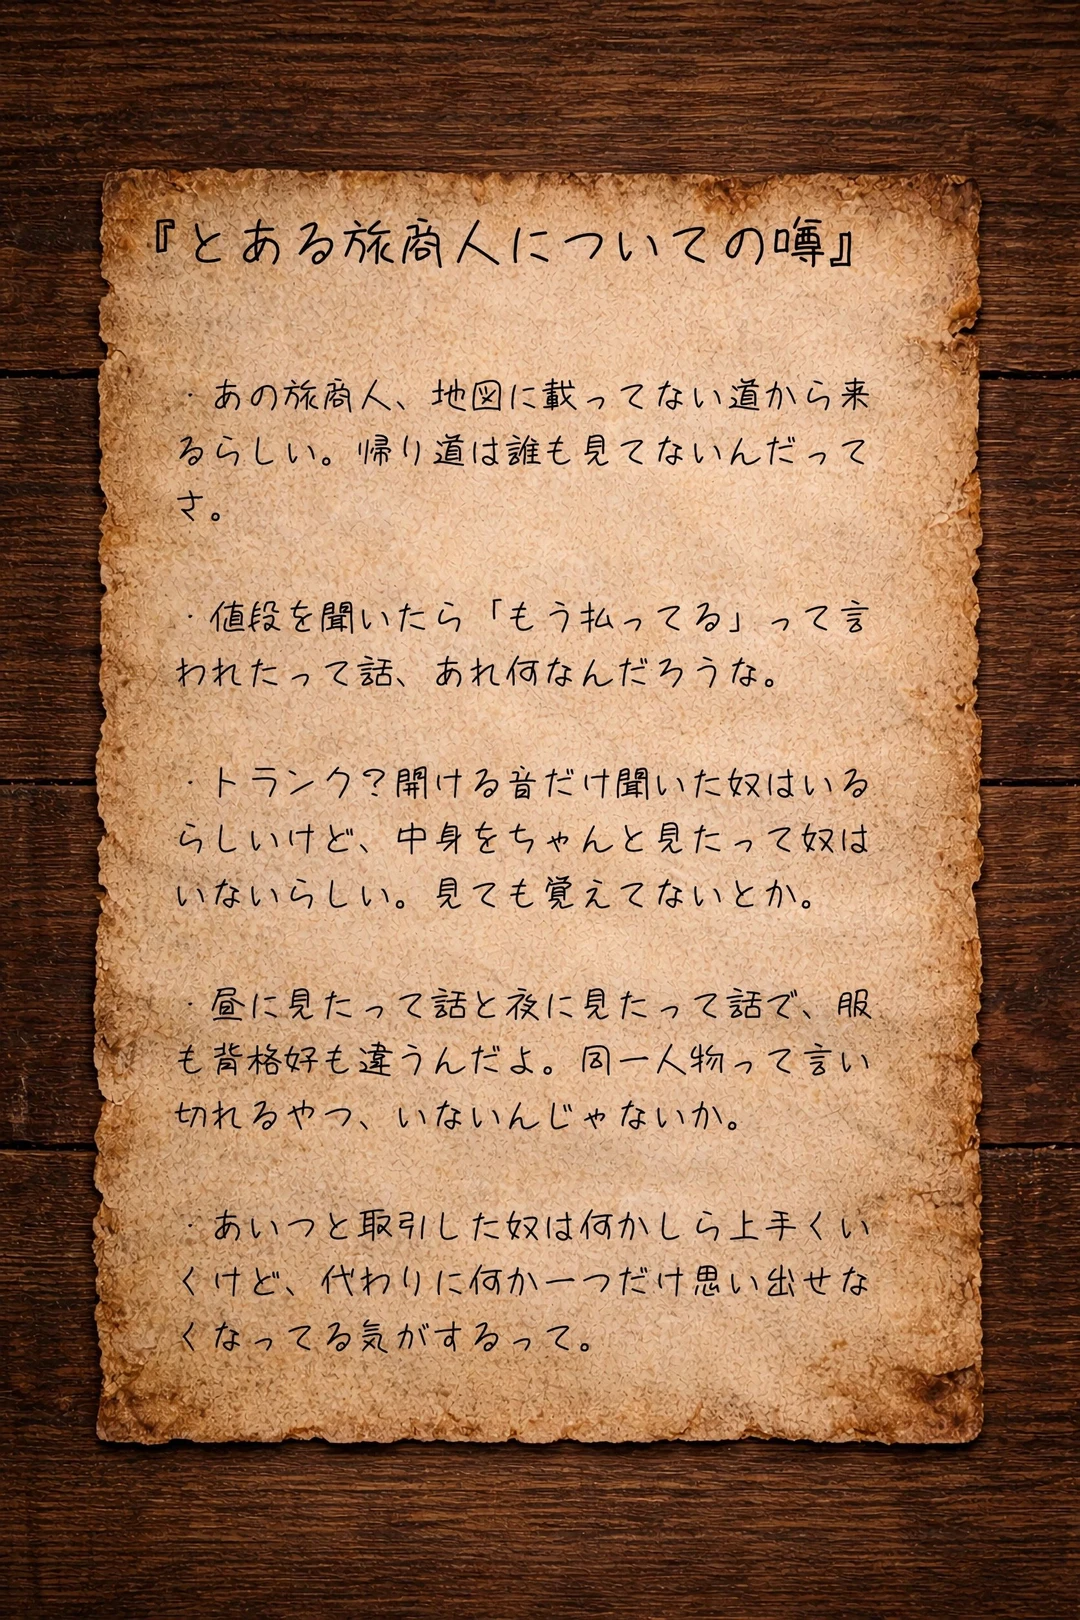 『とある旅商人についての噂』
・あの旅商人、地図に載ってない道から来
るらしい。帰り道は誰も見てないんだって
さ。
・値段を聞いたら「もう払ってる」って言
われたって話、あれ何なんだろうな。
・トランク？開ける音だけ聞いた奴はいる
らしいけど、中身をちゃんと見たって奴は
いないらしい。見ても覚えてないとか。
・昼に見たって話と夜に見たって話で、服
も背格好も違うんだよ。同一人物って言い
切れるやつ、いないんじゃないか。
・あいつと取引した奴は何かしら上手くい
くけど、代わりに何か一つだけ思い出せな
くなってる気がするって。